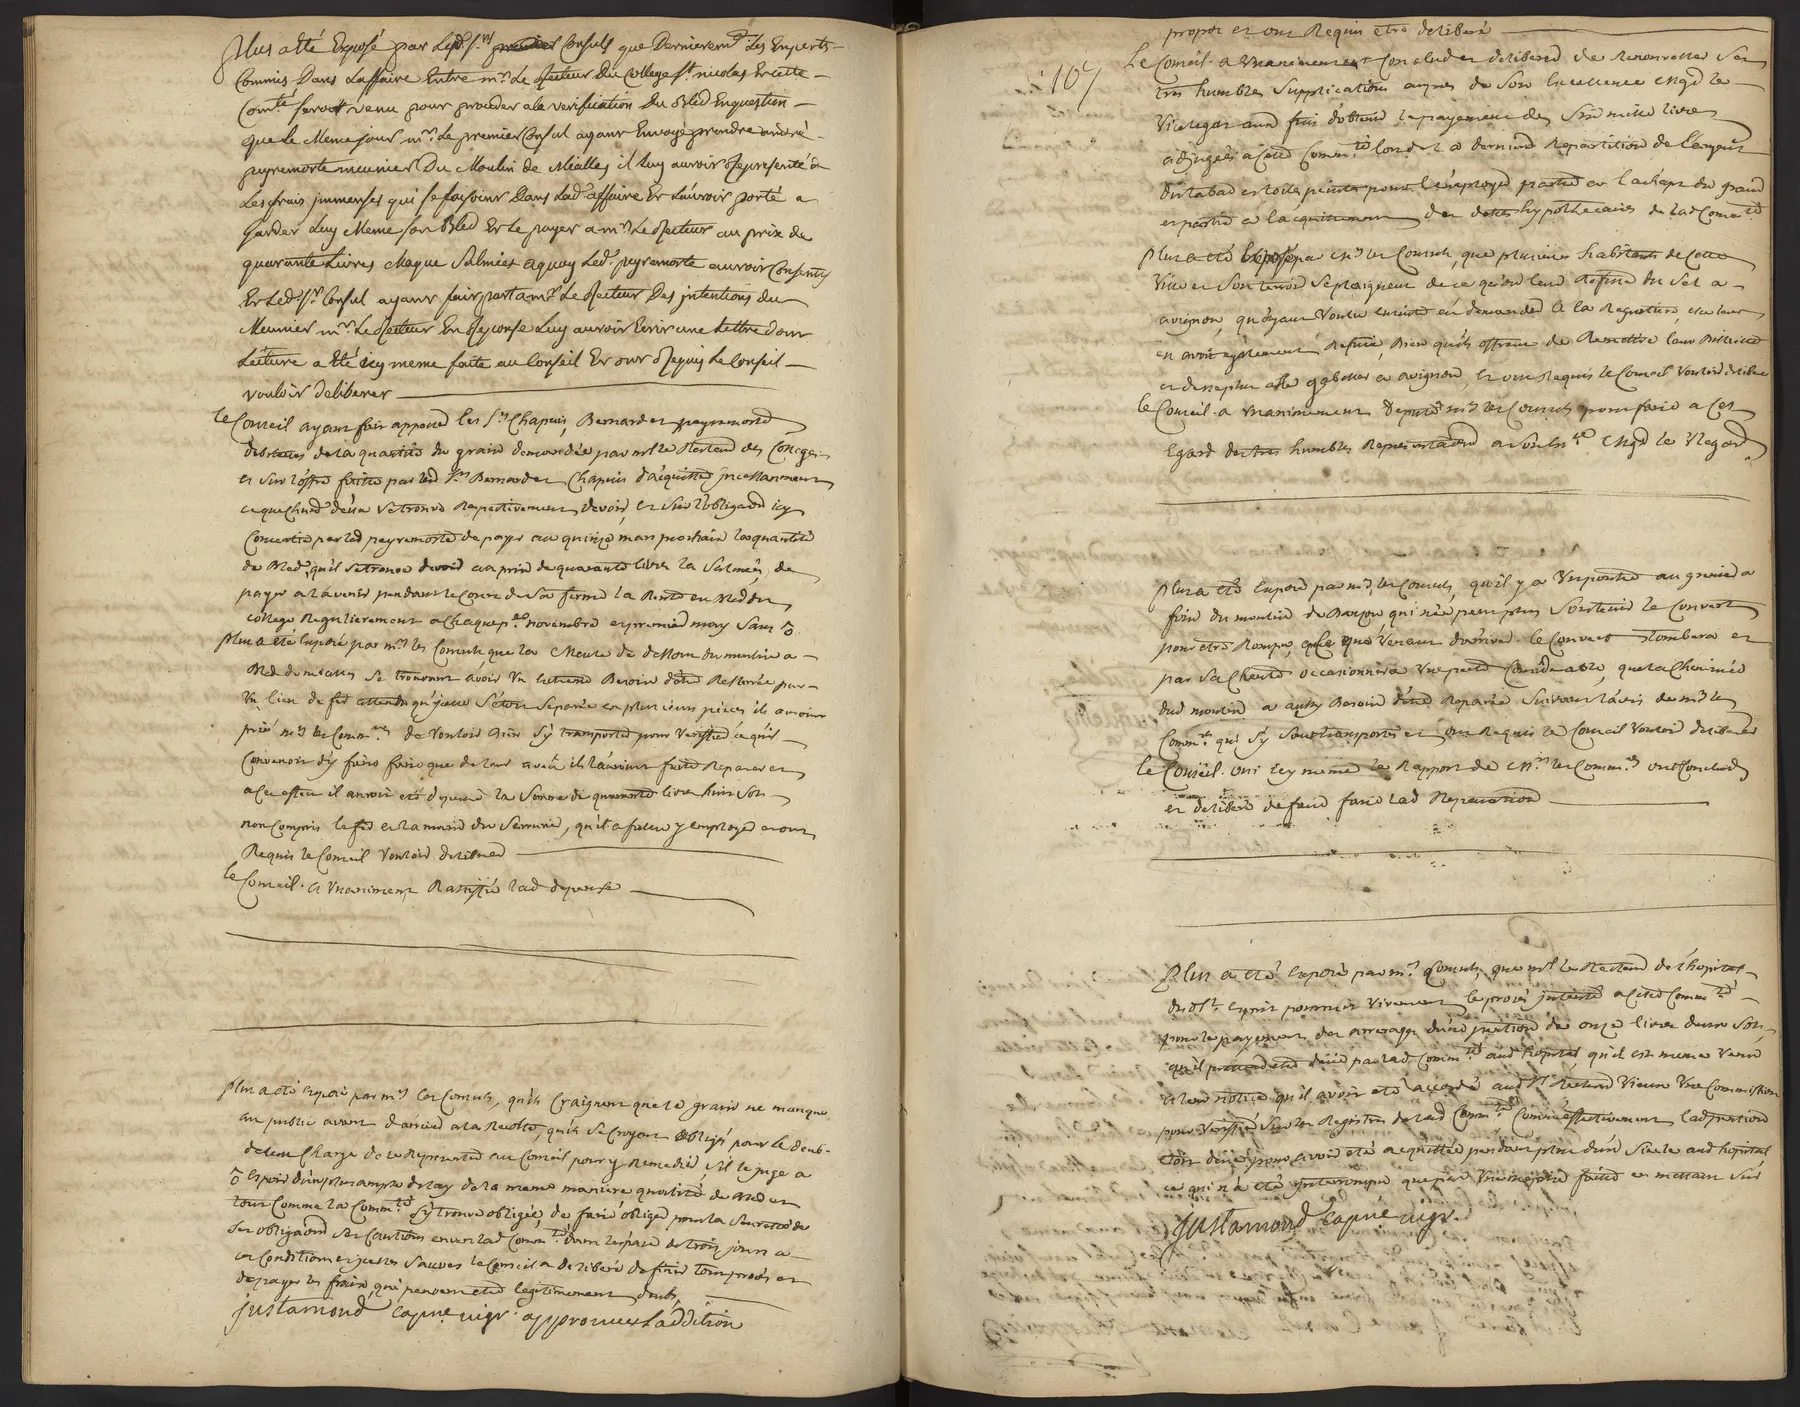 Plus a été Exposé par Lesd. srs premier Consuls que Dernierem.t Les Experts
Commis Dans Laffaire Entre mr. Le Recteur Du College st. nicolas Et cette
Com.té seroit venu pour proceder a la verification Du Bled En question
que le Meme jour mr. Le premier Consul ayant Envoyé prendre andré
peyremorte meunier Du Moulin de Mialles il Luy auroit Representé
Les frais jmmenses qui se faisoint Dans Lad. affaire Et L'auroit porté a
Garder Luy Meme son Bled Et le payer a mr. Le Recteur au prix de
quarante Livres chaque Salmée aquoy Led. peyremorte auroit Consenty
Et Led. sr. Consul ayant fait part a mr. Le Recteur Des jntentions du
Meunier mr. Le Recteur En Reponse Luy auroit Ecrit une Lettre dont
Lecture a été icy meme faite au Conseil Et ont Requis Le Conseil
vouloir deliberer
le Conseil ayant fait appeller les srs Chapuis, Bernard et peyremorte
debiteurs de la quantité du grain demandée par mr le Recteur des Colleges
et sur l'offre faitte par led. srs Bernard et Chapuis d'acquitter jncessamment
ce que Chacun d'eux se trouve Respectivement devoir, et sur l'obligation icy
Consentie par led. peyremorte de payer au quinze mars prochain la quantité
de Bled, qu'il se trouve devoir au prix de quarante livres la Salmée, de
payer a l'avenir pendant le Cours de sa ferme la Rente en Bled du
College Regulierement a Chaque p.er novembre et premier may sans
Plus a été Exposé par mrs les Consuls que la Meule de dessous du moulin a
Bled de mialles se trouvant avoir un extreme Besoin d'etre Resserrée par
un lien de fer attendu qu'jcelle s'etoit separée en plusieurs pieces ils auroint
prié mrs les Comm.res de vouloir bien s'y transporter pour verifier ce qu'il
Convenoit d'y faire faire que de leur aveu ils l'auroint faitte Reparer et
a Cet effet il auroit eté depensé la somme de quarante livres huit sols
non Compris le fer et la main du Serrurier, qu'il a fallu y employer et ont
Requis le Conseil vouloir deliberer
le Conseil a unaniment Ratiffié lad. depense
Plus a été exposé par mrs les Consuls, qu'ils Craignent que le grain ne manque
au public avant d'arriver a la Recolte, qu'ils se Croyent obligés pour le deub
de leur Charge de le Representer au Conseil pour y Remedier, s'il le juge a
espoir d'un plus ample delay de la meme maniere quantité de Bled et
tout Comme la Comm.té s'y trouve obligée, de faire obliger pour la seureté de
ses obligations ses Cautions envers lad. Comm.té dans l'espace de trois jours a
ces Conditions et jcelles sauves le Conseil a deliberé de finir tout procés et
de payer les fraix, qui peuvent etre legitimement deubs
justamond capne vigr. approuvant l'addition
107
propos et ont Requis etre deliberé
Le Conseil a unanimement Conclud et deliberé de Renouveller ses
tres humbles supplications aupres de Son Excellence Mgr le
Vicelegat aux fins d'obtenir le payement des six mille livres
adjugées a Cette Comm.té lors de la derniere Repartition de l'argent
du tabac et toiles peintes pour l'employer partie a l'achapt du grain
et partie a l'acquittement des dettes hypothecaires de lad. Comm.té
Plus a été Exposé par mrs les Consuls, que plusieurs habitants de Cette
Ville et son terroir se plaignent de ce qu'on leur Refuse du Sel a
avignon, qu'ayant voulu ensuite en demander a la Regrattiere, elle leur
en avoit egalement Refusé, Bien qu'ils offrent de Remettre leur Billette
et de ne plus aller gabeller a avignon, et ont Requis le Conseil vouloir deliberer
le Conseil a unanimement deputé mrs les Consuls pour faire a Cet
Egard des tres humbles Representations a Son Ex.ce Mgr le Vicelegat
Plus a été Exposé par mrs les Consuls, qu'il y a une poutre au grenier a
foin du moulin de Banjon qui n'en peut plus soutenir le Couvert
pour etre Rompue, que venant d'arriver le Couvert tombera et
par sa Cheutte occasionnera une perte Considerable, que la Cheminée
dud. moulin a aussy Besoin d'etre Reparée suivant l'avis de mrs les
Comm.res qui s'y sont transportés et ont Requis le Conseil vouloir deliberer
le Conseil oui icy meme le Rapport de Mrs les Comm.res ont Conclud
et deliberé de faire faire lad. Reparation
Plus a été Exposé par mrs Consuls, que mr le Recteur de l'hopital
du st. Esprit poursuit vivement le procés jntenté a Cette Comm.té
pour le payement des arrerages d'une pention de onze livres deux sols
qu'il pretend etre deüe par lad. Comm.té aud. hopital, qu'il est meme venu
a leur notice qu'il avoit eté accordé aud. sr Recteur Vieux une Commission
pour verifier sur les Registres de lad. Comm.té Comm'effectivement lad. pention
etoit deüe pour avoir eté acquittée pendant plus d'un siecle aud. hopital
ce qui n'a eté jnterrompu que par une meprise faitte en mettant sur
justamond capne vigr.